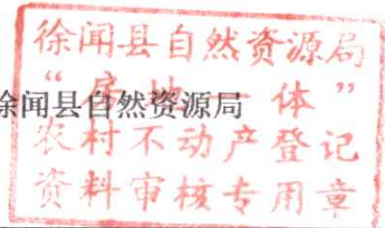 徐闻县自然资源局
“房地一体”
徐闻县自然资源局
农村不动产登记
资料审核专用章